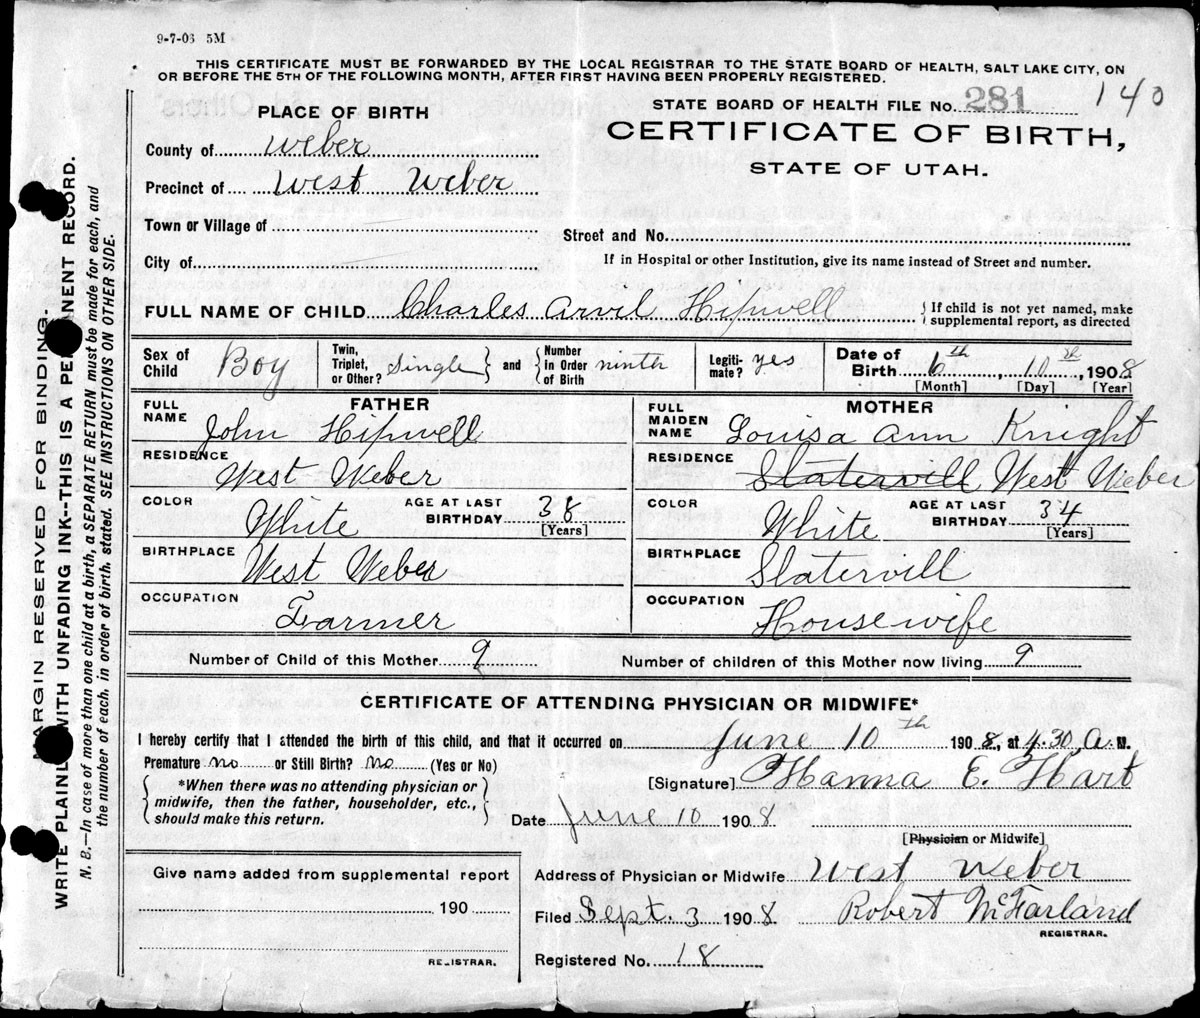 9-7-06 5M
THIS CERTIFICATE MUST BE FORWARDED BY THE LOCAL REGISTRAR TO THE STATE BOARD OF HEALTH, SALT LAKE CITY, ON
OR BEFORE THE 5TH OF THE FOLLOWING MONTH, AFTER FIRST HAVING BEEN PROPERLY REGISTERED.
140
STATE BOARD OF HEALTH FILE No. 281
CERTIFICATE OF BIRTH,
STATE OF UTAH.
PLACE OF BIRTH
County of Weber
Precinct of West Weber
Town or Village of
City of
Street and No.
If in Hospital or other Institution, give its name instead of Street and number.
FULL NAME OF CHILD Charles Arvil Hipwell { If child is not yet named, make
supplemental report, as directed
Sex of
Child Boy
Twin,
Triplet,
or Other? Single } and { Number
in Order
of Birth ninth
Legiti-
mate? yes
Date of
Birth 6th, 10th, 1908
[Month] [Day] [Year]
FATHER
FULL
NAME John Hipwell
RESIDENCE West Weber
COLOR White AGE AT LAST
BIRTHDAY 38
[Years]
BIRTHPLACE West Weber
OCCUPATION Farmer
MOTHER
FULL
MAIDEN
NAME Louisa Ann Knight
RESIDENCE Slatervill West Weber
COLOR White AGE AT LAST
BIRTHDAY 34
[Years]
BIRTHPLACE Slatervill
OCCUPATION Housewife
Number of Child of this Mother 9 Number of children of this Mother now living 9
CERTIFICATE OF ATTENDING PHYSICIAN OR MIDWIFE*
I hereby certify that I attended the birth of this child, and that it occurred on June 10th 1908, at 4.30, A. M.
Premature no or Still Birth? no (Yes or No)
{ *When there was no attending physician or
midwife, then the father, householder, etc.,
should make this return. }
[Signature] Hanna E. Hart
Date June 10 1908
[Physician or Midwife]
Give name added from supplemental report
190
REGISTRAR.
Address of Physician or Midwife West Weber
Filed Sept. 3 1908 Robert McFarland
REGISTRAR.
Registered No. 18
MARGIN RESERVED FOR BINDING.
WRITE PLAINLY WITH UNFADING INK--THIS IS A PERMANENT RECORD.
N. B.—In case of more than one child at a birth, a SEPARATE RETURN must be made for each, and
the number of each, in order of birth, stated. SEE INSTRUCTIONS ON OTHER SIDE.